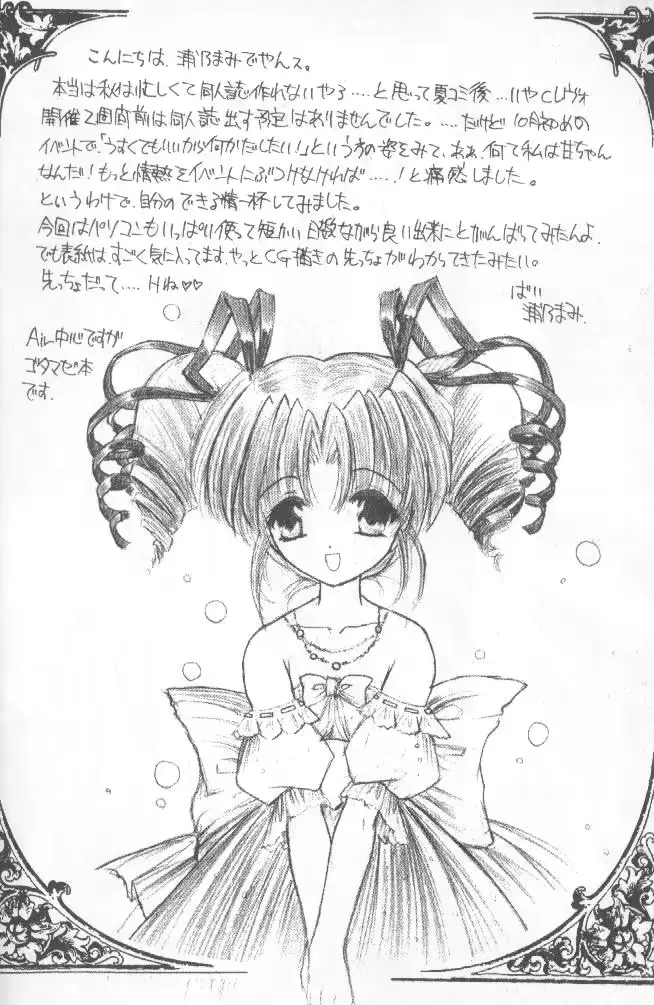 こんにちは、浦乃まみでやんス。
本当は私は忙しくて同人誌作れないやろ‥‥と思って夏コミ後‥‥いやCレヴォ
開催2週間前は同人誌出す予定はありませんでした。‥‥だけど10月初めの
イベントで、「うすくてもいいから何かだしたい!」という方の姿をみて、あぁ、何て私は甘ちゃん
なんだ!もっと情熱をイベントにぶつけなければ‥‥!と痛感しました。
というわけで、自分のできる精一杯してみました。
今回はパソコンもいっぱい使って短かい日数ながら良い出来にとがんばってみたんよ。
でも表紙は、すごく気に入ってます。やっとCG描きの先っちょがわかってきたみたい。
先っちょだって‥‥Hね♡♡
ばい
浦乃まみ.
Air中心ですが
ゴタマゼ本
です.